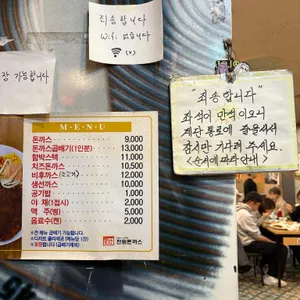 죄송합니다
Wifi 없습니다
(x)
장 가능합니다
MENU
돈까스 9,000
돈까스곱배기(1인분) 13,000
함박스텍 11,000
치즈돈까스 10,500
비후까스(소고기) 12,000
생선까스 10,000
공기밥 1,000
야 채(1접시) 2,000
맥 주(병) 5,000
음료수(캔) 2,000
"죄송합니다"
좌석이 만석이오니
계단 통로에 줄을서서
잠시만 기다려 주세요.
<순서에 따라 안내>